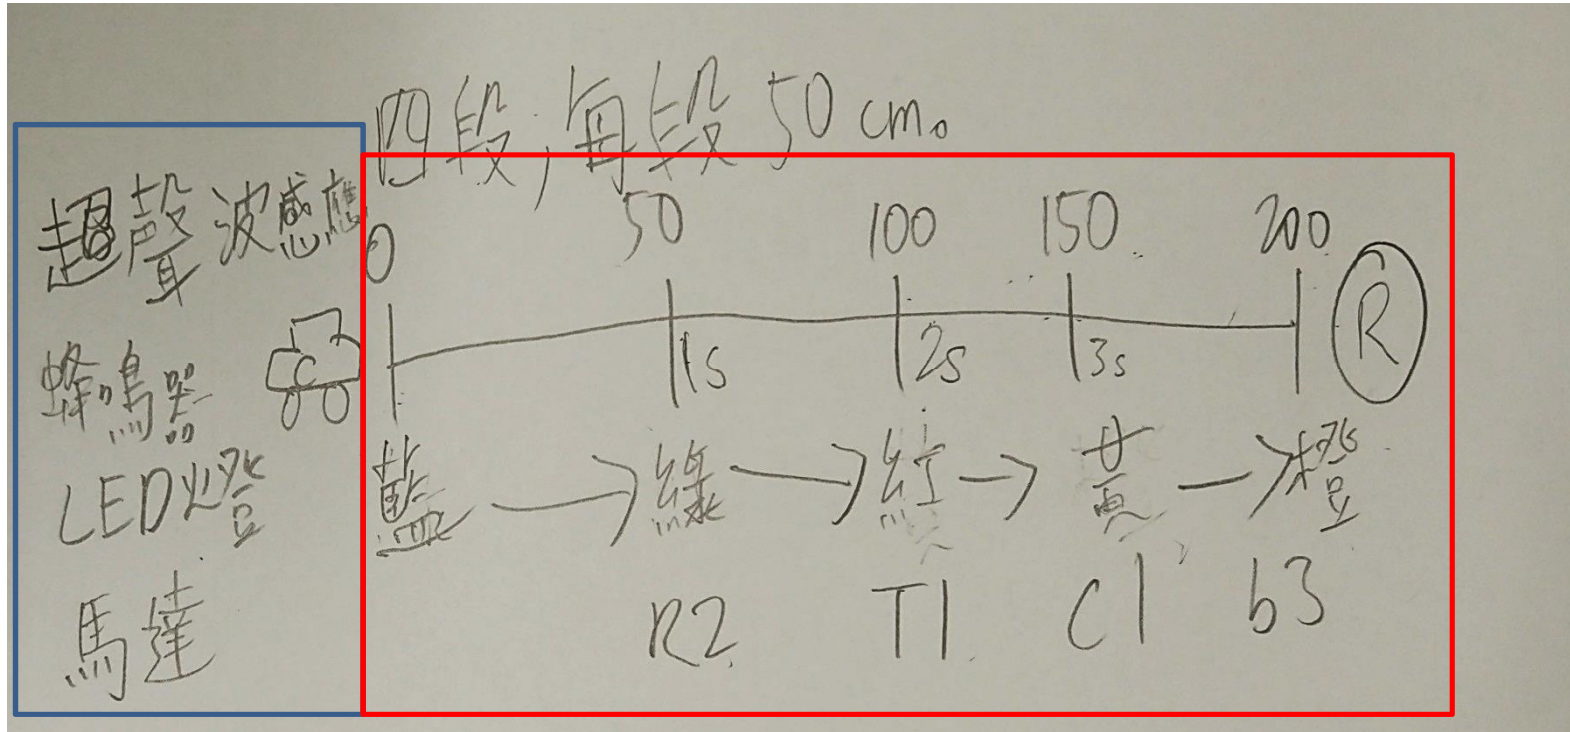 四段,每段50cm。
超聲波感應
蜂鳴器
LED燈
馬達
0 50 100 150 200
C 1s 2s 3s R
藍→綠→紅→黃→橙
R2 T1 C1 b3